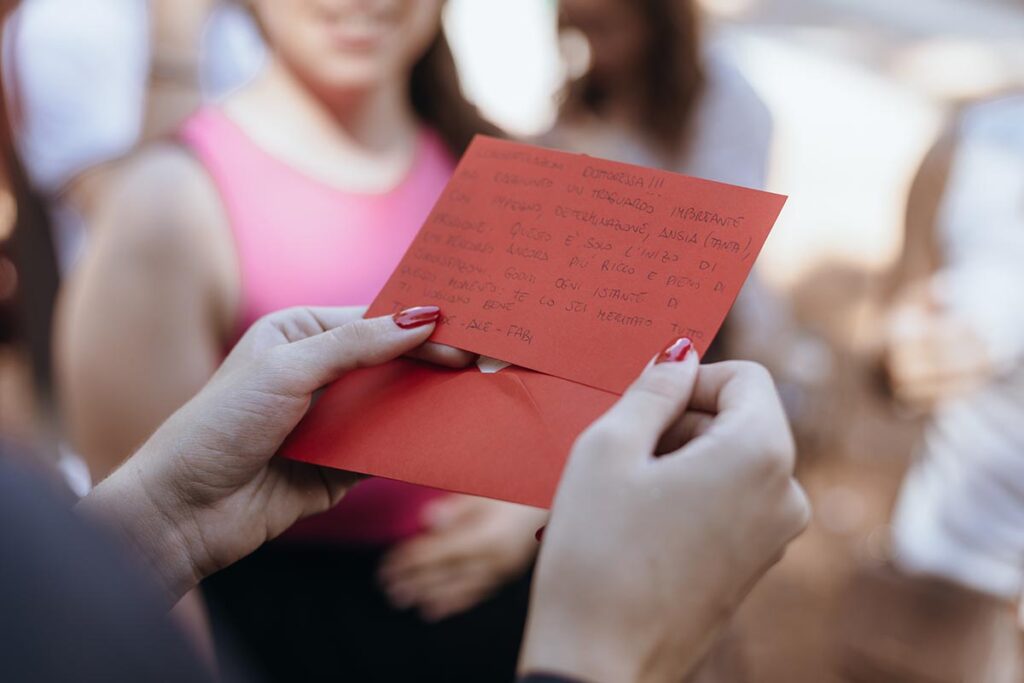 CONGRATULAZIONI DOTTORESSA!!!
HAI RAGGIUNTO UN TRAGUARDO IMPORTANTE
CON IMPEGNO, DETERMINAZIONE, ANSIA (TANTA),
QUESTO È SOLO L'INIZIO DI
UN PERCORSO ANCORA PIÙ RICCO E PIENO DI
SODDISFAZIONI. GODITI OGNI ISTANTE DI
QUESTO MOMENTO. TE LO SEI MERITATO TUTTO
TI VOGLIAMO BENE
- ALE - FABI